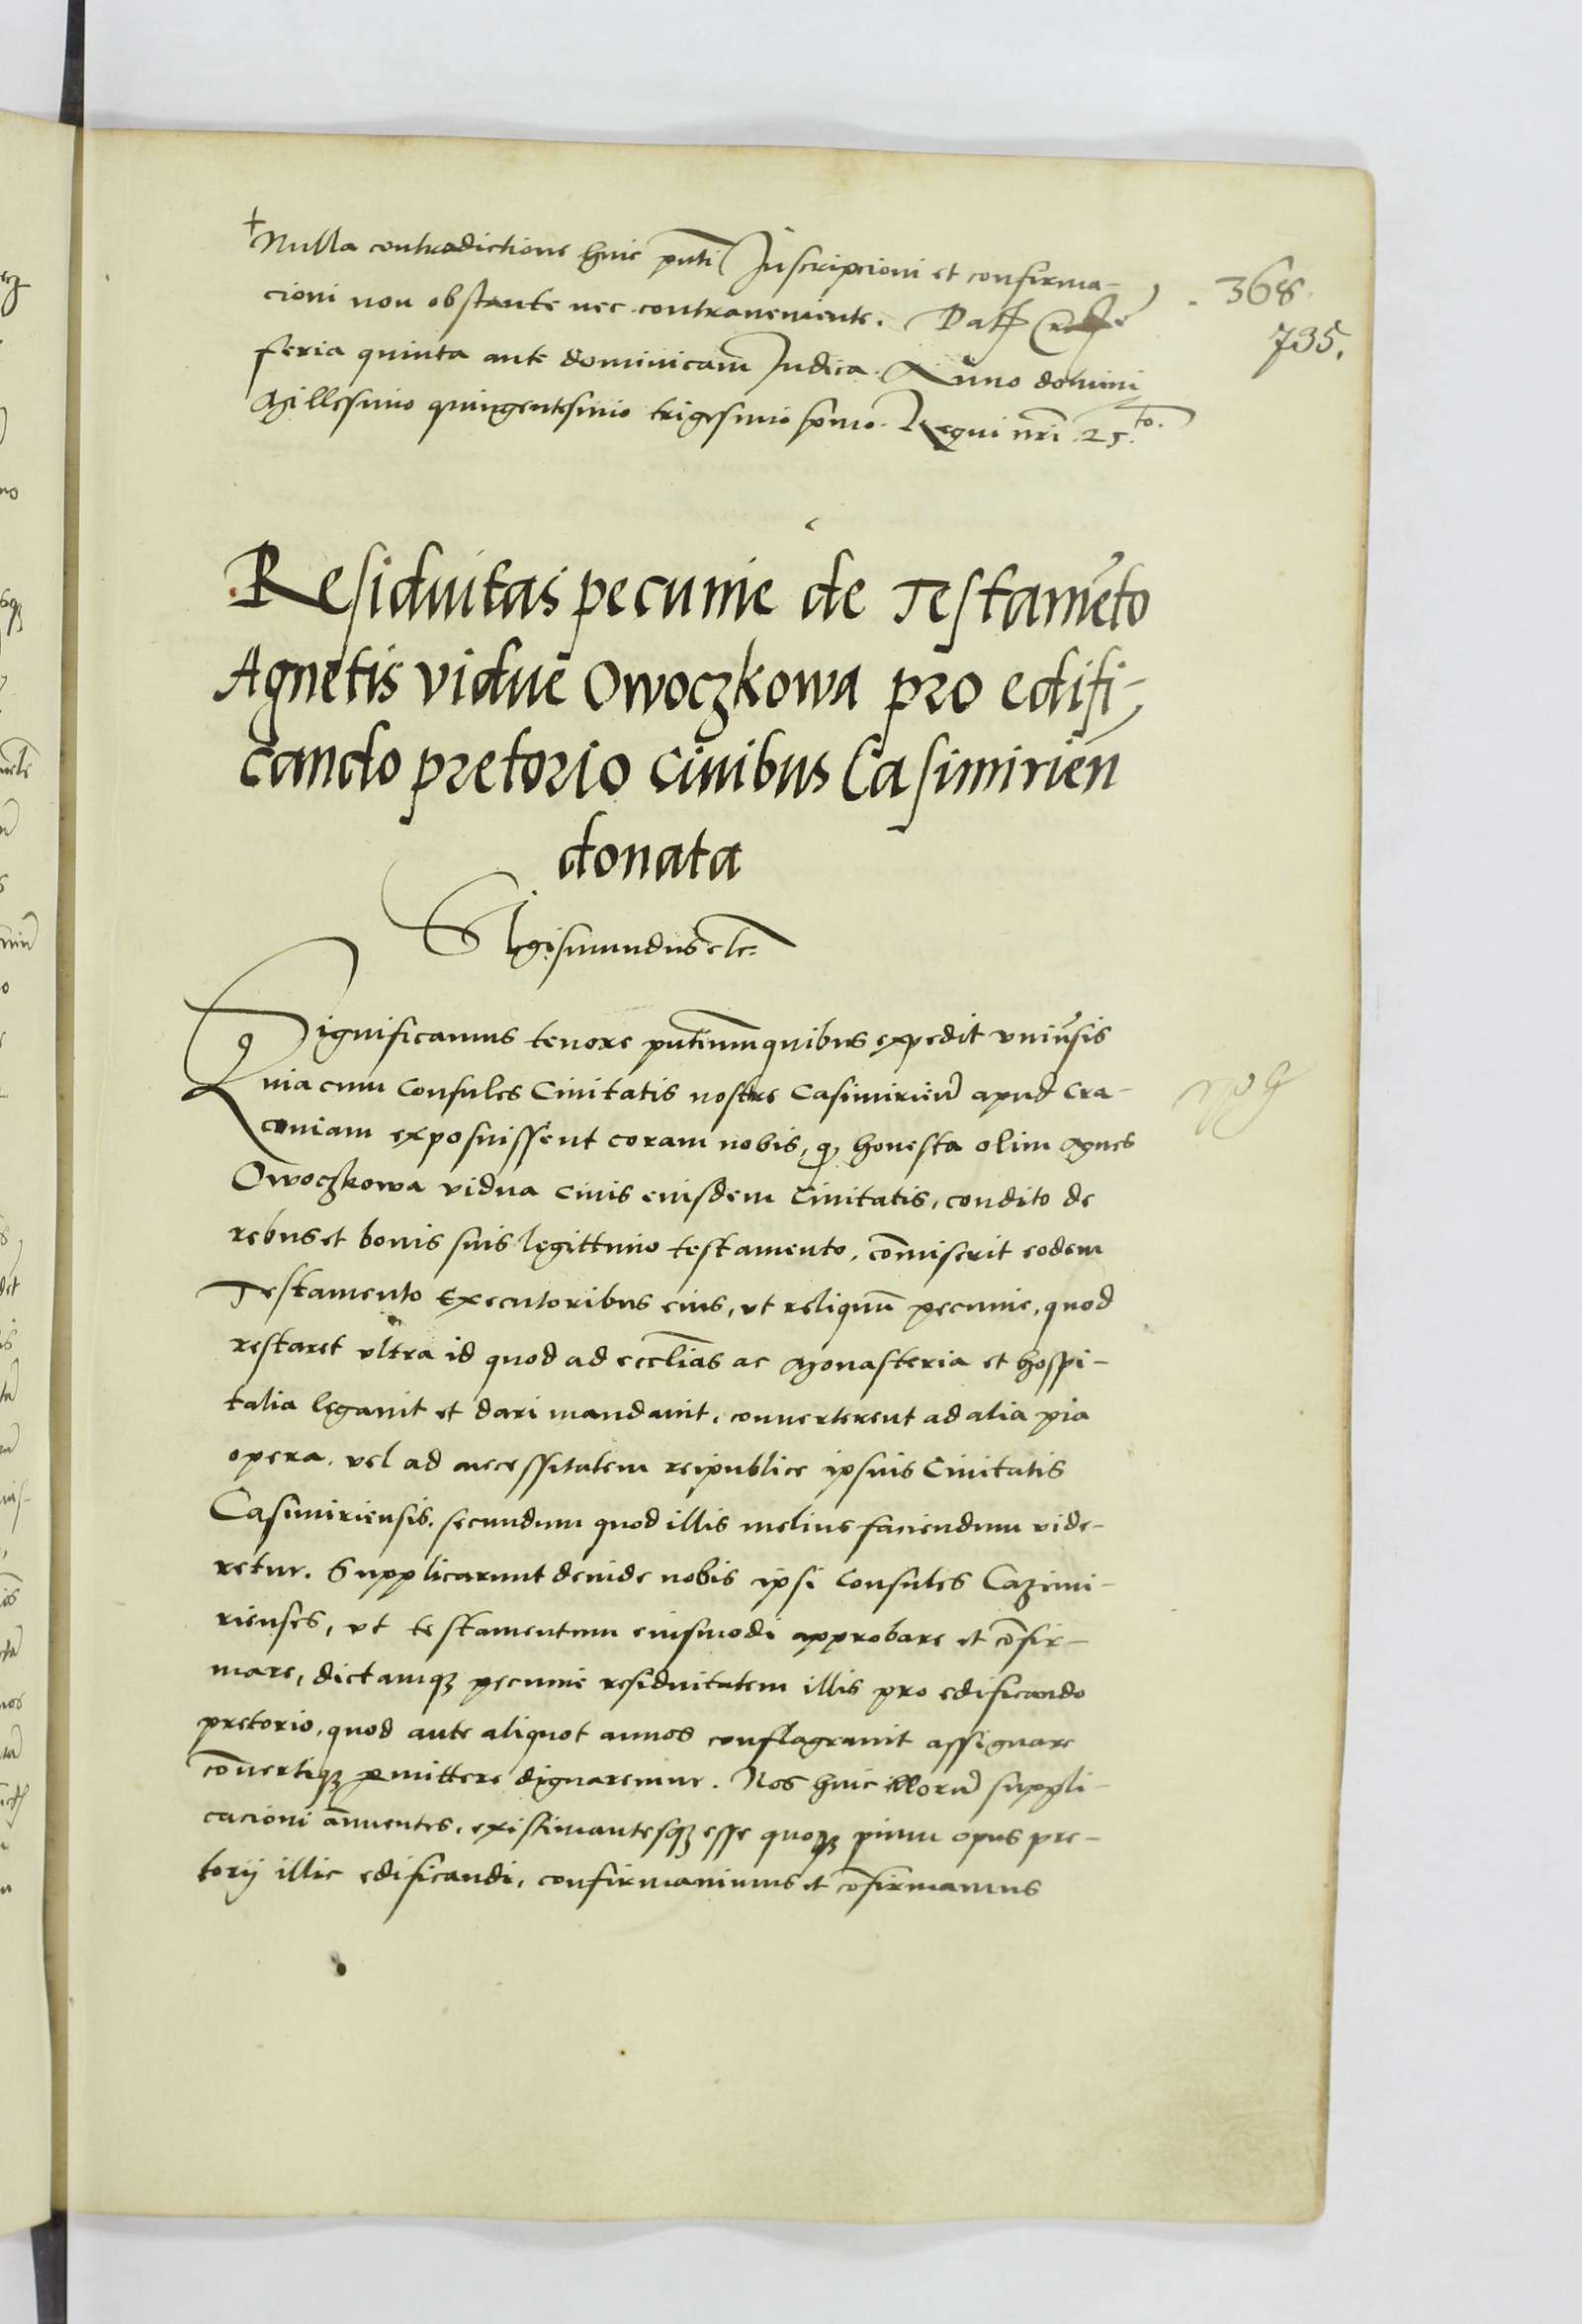 Nulla contradictione huic pnti Inscripcioni et confirma-
cioni non obstante nec contraveniente. Datt
368.
feria quinta ante dominicam Iudica. Anno domini
735.
Millesimo quingentesimo trigesimo Regni nri 25.to
Residuitas pecunie de Testamẽto
Agnetis vidue Owoczkowa pro edifi-
cando pretorio civibus Casimirień
donata
Sigismundus etc.
Significamus tenore pntium quibus expedit univ̾sis
Quia cum Consules Civitatis nostre Casimirień apud Cra-
coviam exposuissent coram nobis, ꝙ honesta olim Agnes
Owoczkowa vidua civis eiusdem Civitatis, condito de
rebus et bonis suis legittimo testamento, com̄iserit eodem
Testamento Executoribus eius, ut reliquū pecunie, quod
restaret ultra id quod ad eccl̄ias ac Monasteria et hospi-
talia legavit et dari mandavit, converterent ad alia pia
opera, vel ad necessitatem reipublice ipsius Civitatis
Casimiriensis, secundum quod illis melius faciendum vide-
retur. Supplicarunt deinde nobis ipsi Consules Cazimi-
rienses, ut testamentum eiusmodi approbare et cōfir-
mare, dictamqꝫ pecunie residuitatem illis pro edificando
pretorio, quod ante aliquot annos conflagravit assignare
cōvertiqꝫ ꝑmittere dignaremur. Nos huic illorū suppli-
cacioni ān̄uentes, existimantesqꝫ esse quoqꝫ pium opus pre-
torij illic edificandi, confirmavimus et cōfirmamus